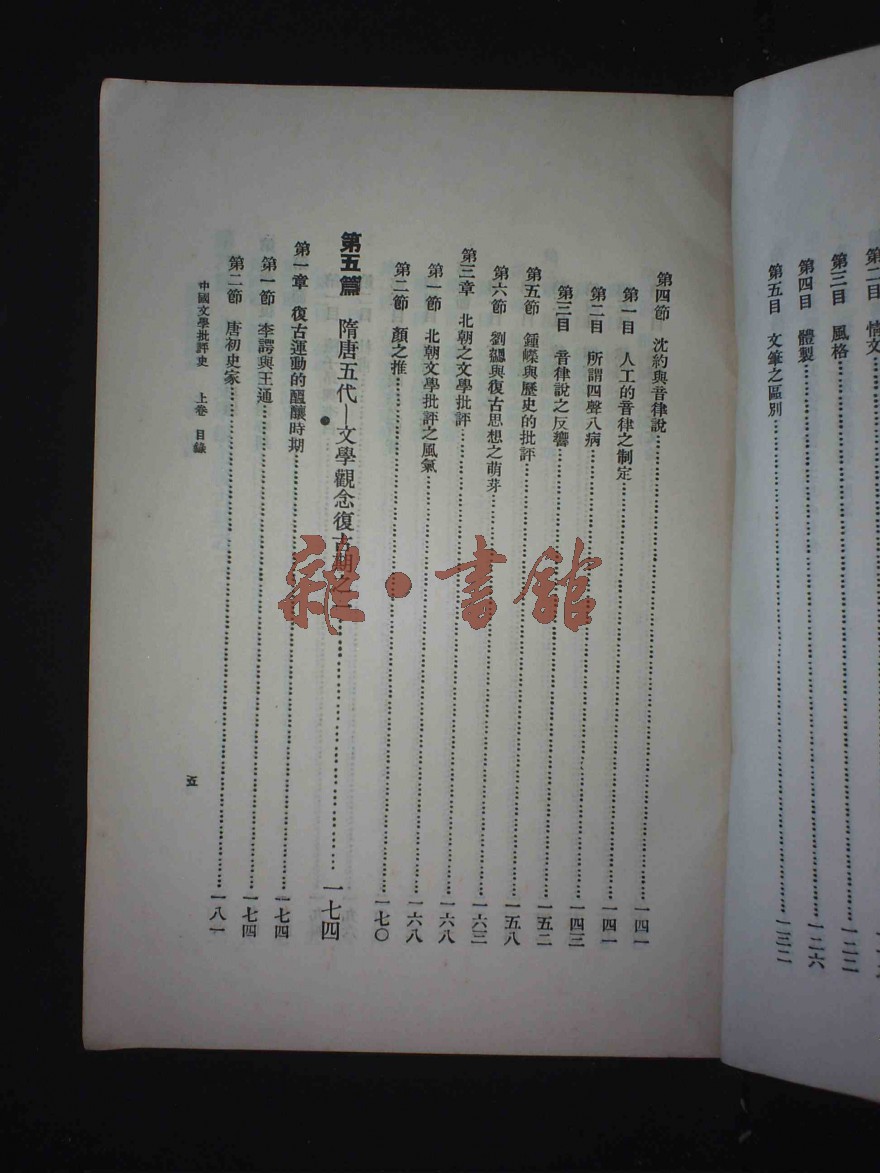 第二目 情文
第三目 風格……一二二
第四目 體製……一二六
第五目 文筆之區別……一三二
第四節 沈約與音律說……一四一
第一目 人工的音律之制定……一四一
第二目 所謂四聲八病……一四三
第三目 音律說之反響……一五二
第五節 鍾嶸與歷史的批評……一五八
第六節 劉勰與復古思想之萌芽……一六三
第三章 北朝之文學批評……一六八
第一節 北朝文學批評之風氣……一六八
第二節 顏之推……一七〇
第五篇 隋唐五代—文學觀念復古期之一……一七四
第一章 復古運動的醞釀時期……一七四
第一節 李諤與王通……一七四
第二節 唐初史家……一八一
中國文學批評史 上卷 目錄
五
雜·書館